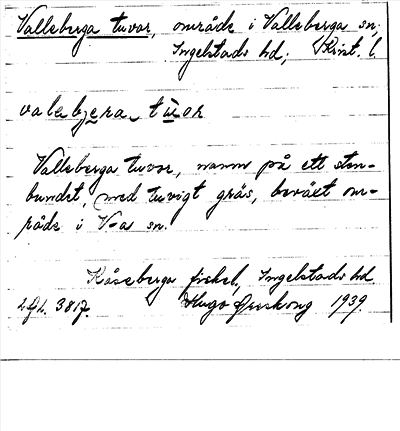 Valleberga tuvor, område i Valleberga sn,
Ingelstads hd, Krist. l.
valebjera tuor
Valleberga tuvor, namn på ett sten-
bundet, med tuvigt gräs, beväxt om-
råde i V-a sn.
Kåseberga fiskel., Ingelstads hd.
3817. Hugo 1939.